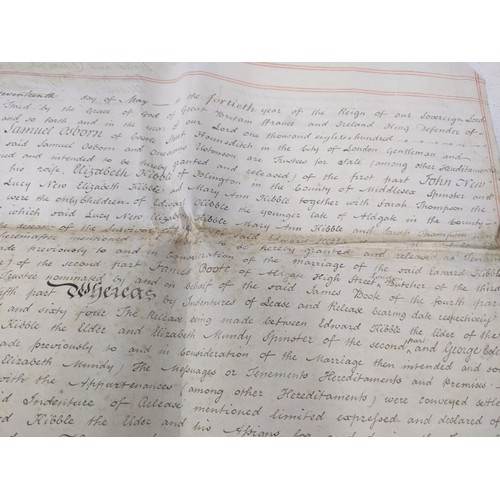 seventeenth day of May in the fortieth year of the Reign of our Sovereign Lord
Third by the Grace of God of Great Britain France and Ireland King Defender of
and so forth and in the year of our Lord one thousand eight hundred
Samuel Osborn of Castle Street Houndsditch in the City of London Gentleman and
said Samuel Osborn and are Trustees for Sale (among other Hereditaments
and intended to be hereby granted and released) of the first part John New
his wife, Elizabeth Kibble of Islington in the County of Middlesex Spinster and
Lucy New Elizabeth Kibble and Mary Ann Kibble together with Sarah Thompson the
were the only children of Edward Kibble the younger late of Aldgate in the County
which said Lucy New Elizabeth Kibble Mary Ann Kibble and Sarah Thompson
decease of the Survivor of the said Edward
hereinafter mentioned to be hereby granted and released as Tenants
made previously to and in consideration of the marriage of the said Edward Kibble
) of the second part James Boote of Aldgate High Street London Butcher of the third
Trustee nominated by and in behalf of the said James Boote of the fourth part
fifth part Whereas by Indentures of Lease and Release bearing date respectively
and sixty four The Release being made between Edward Kibble the Elder of the
Kibble the Elder and Elizabeth Mundy Spinster of the second part and George
made previously to and in consideration of the Marriage then intended and soon
Elizabeth Mundy) The Messuages or Tenements Hereditaments and Premises
with the Appurtenances (among other Hereditaments) were conveyed settled
Indenture of Release mentioned limited expressed and declared of
Kibble the Elder and his Assigns for